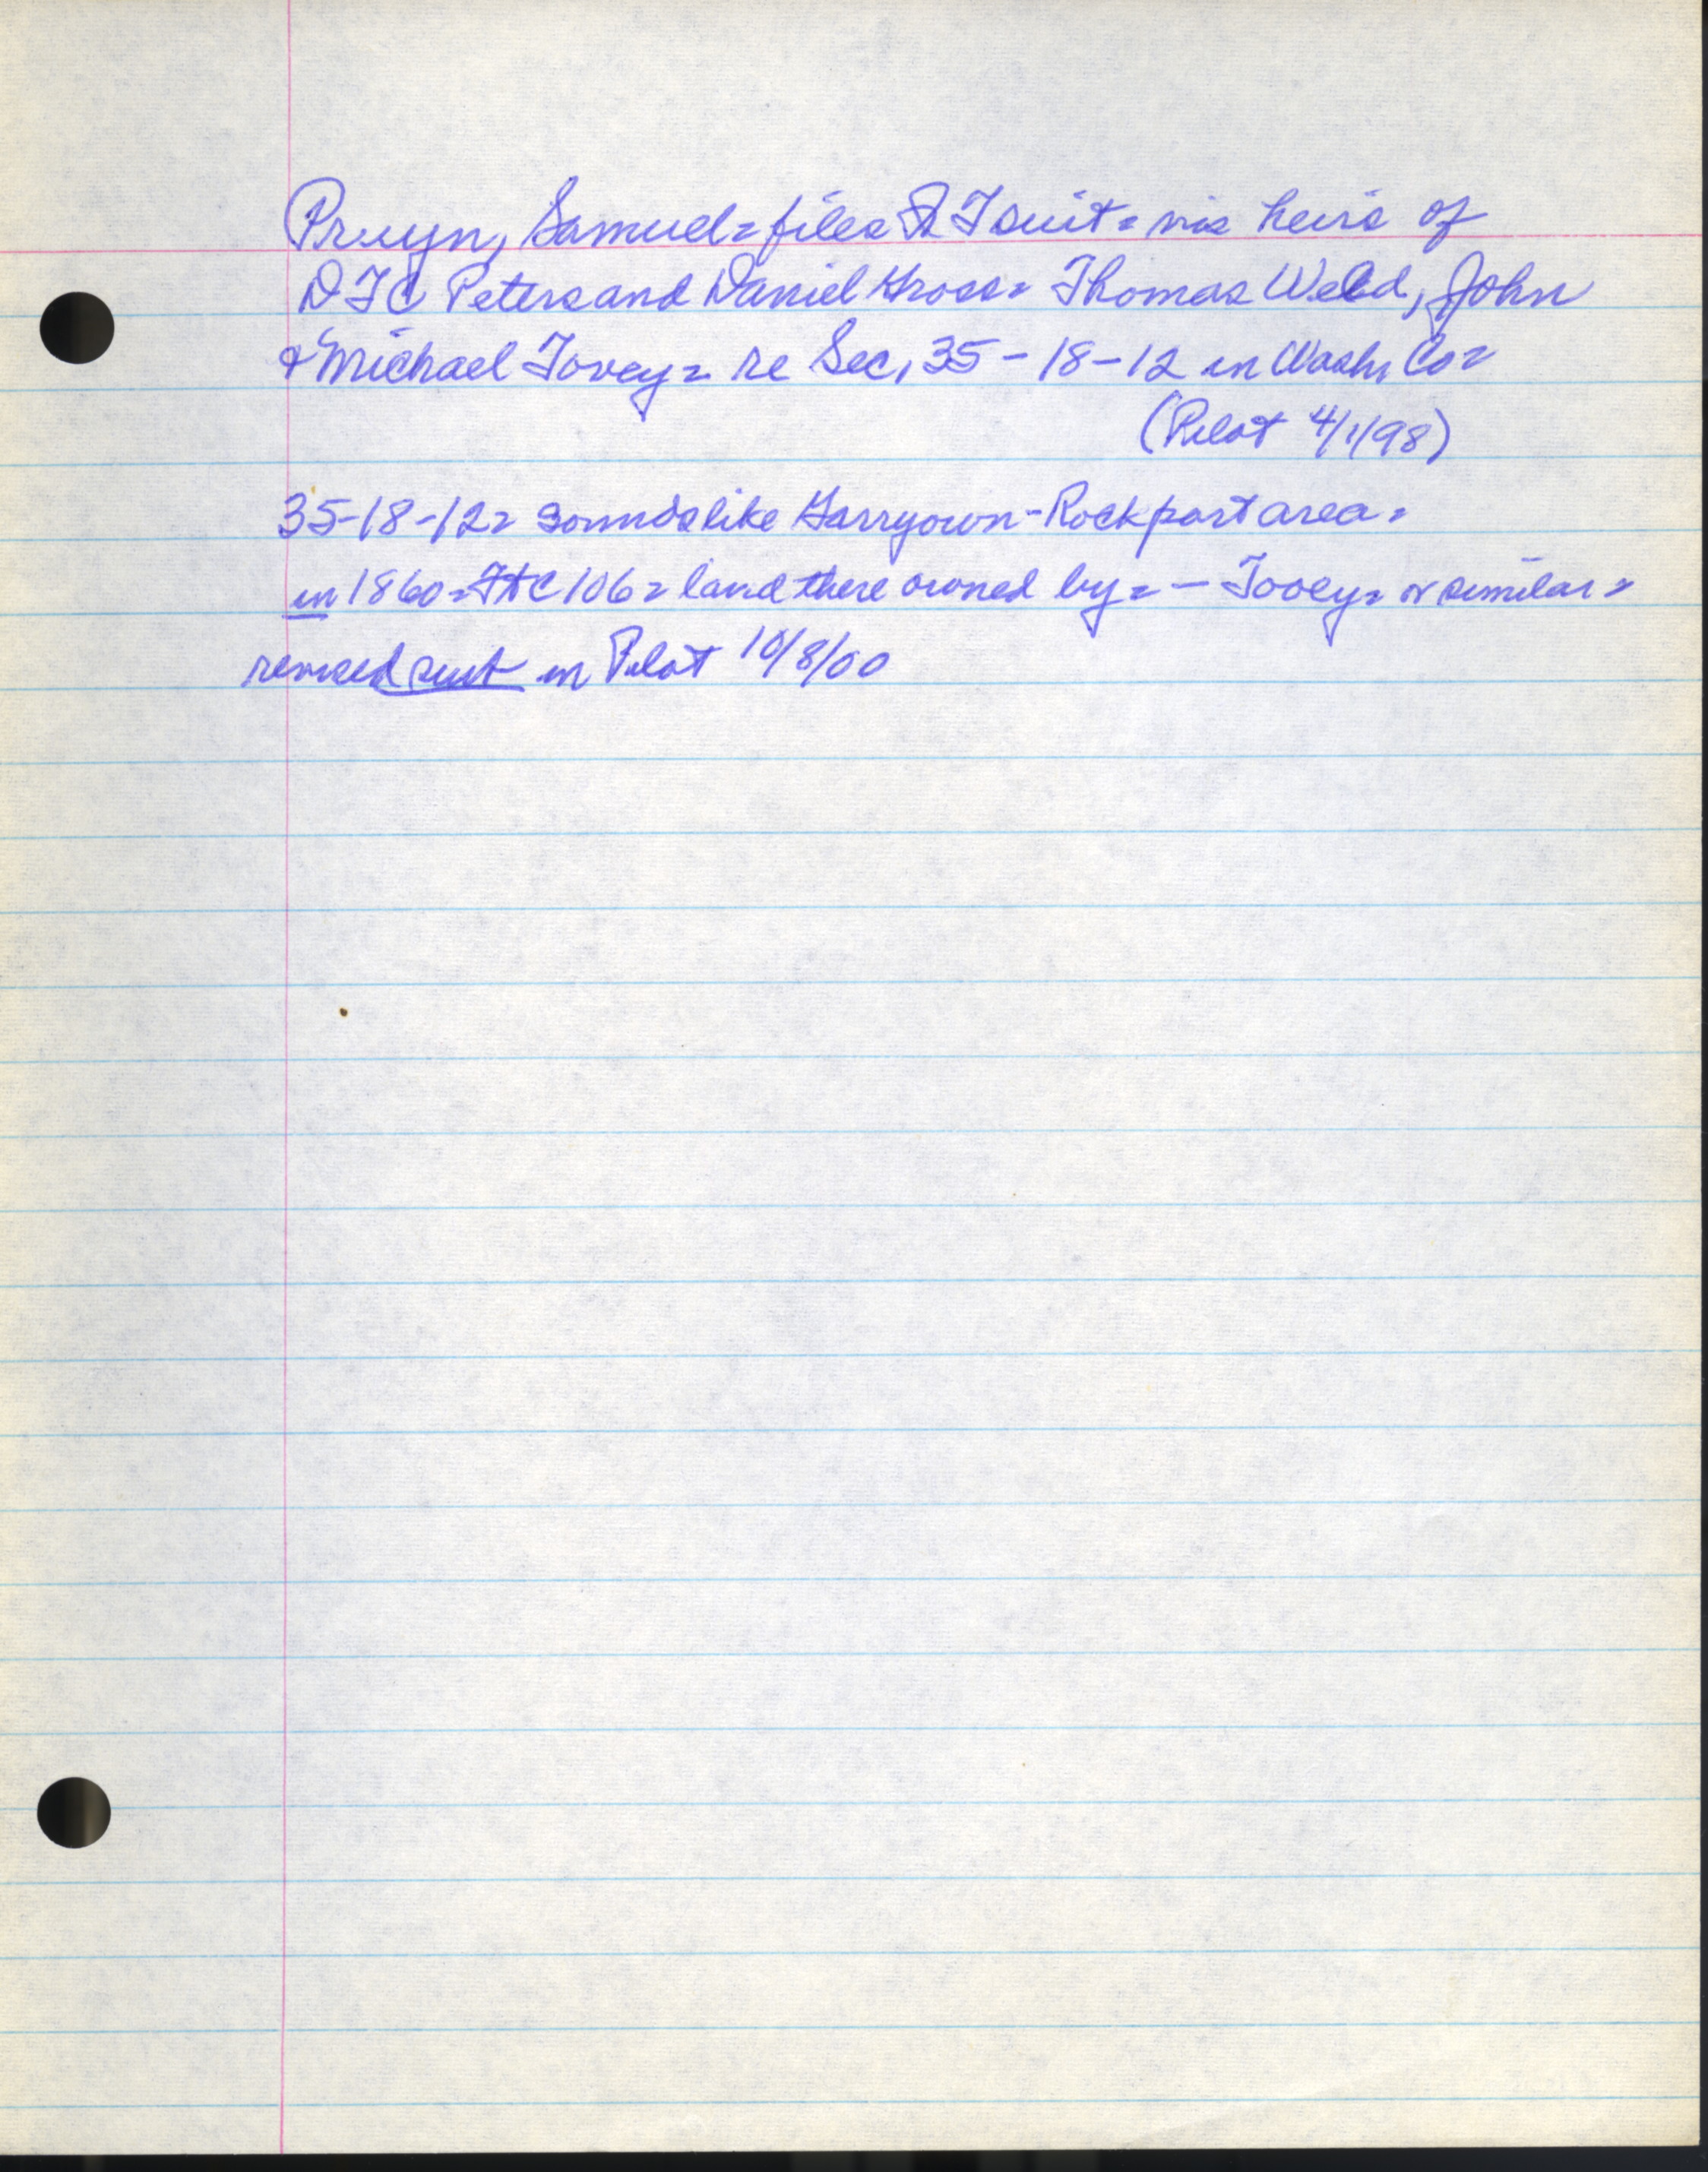 Pruyn, Samuel = files QT suit = vis heirs of
DTC Peters and Daniel Gross = Thomas Weld, John
& Michael Tovey = re Sec, 35-18-12 in Wash, Co =
(Pilot 4/1/98)
35-18-12 = sounds like Garryown-Rockport area =
in 1860 = 106 = land there owned by = - Tovey = or similar =
revised suit in Pilot 10/8/00